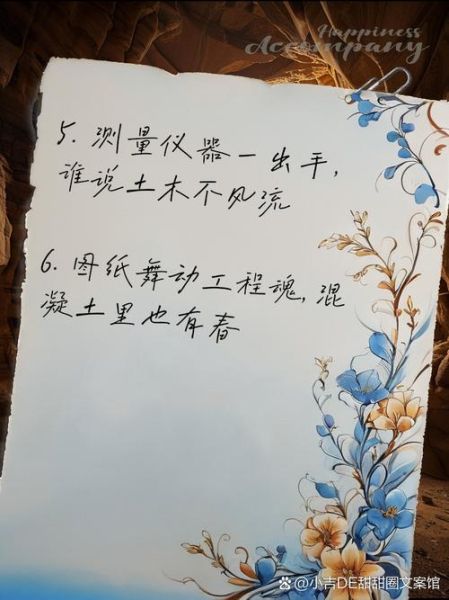 Happiness
Accompany
5. 测量仪器一出手,
谁说土木不风流
6. 图纸舞动工程魂, 混
凝土里也有春
@小吉DE甜甜圈文案馆